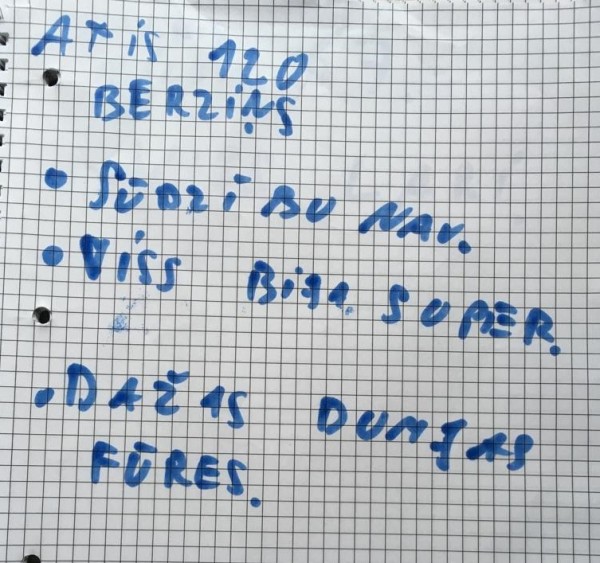 ATIS 120
BERZIŅŠ
• SŪDZĪBU NAV.
• VISS BIJA SUPER.
• DAŽAS DUMJAS
FŪRES.